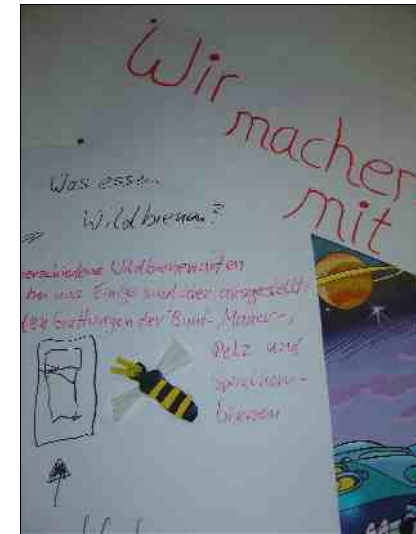 Wir
machen
mit
Was essen
Wildbienen?
verschiedene Wildbienenarten
bei uns. Einige sind hier ausgestellt:
der Gattungen der Blut-, Mauer-,
Pelz und
bienen